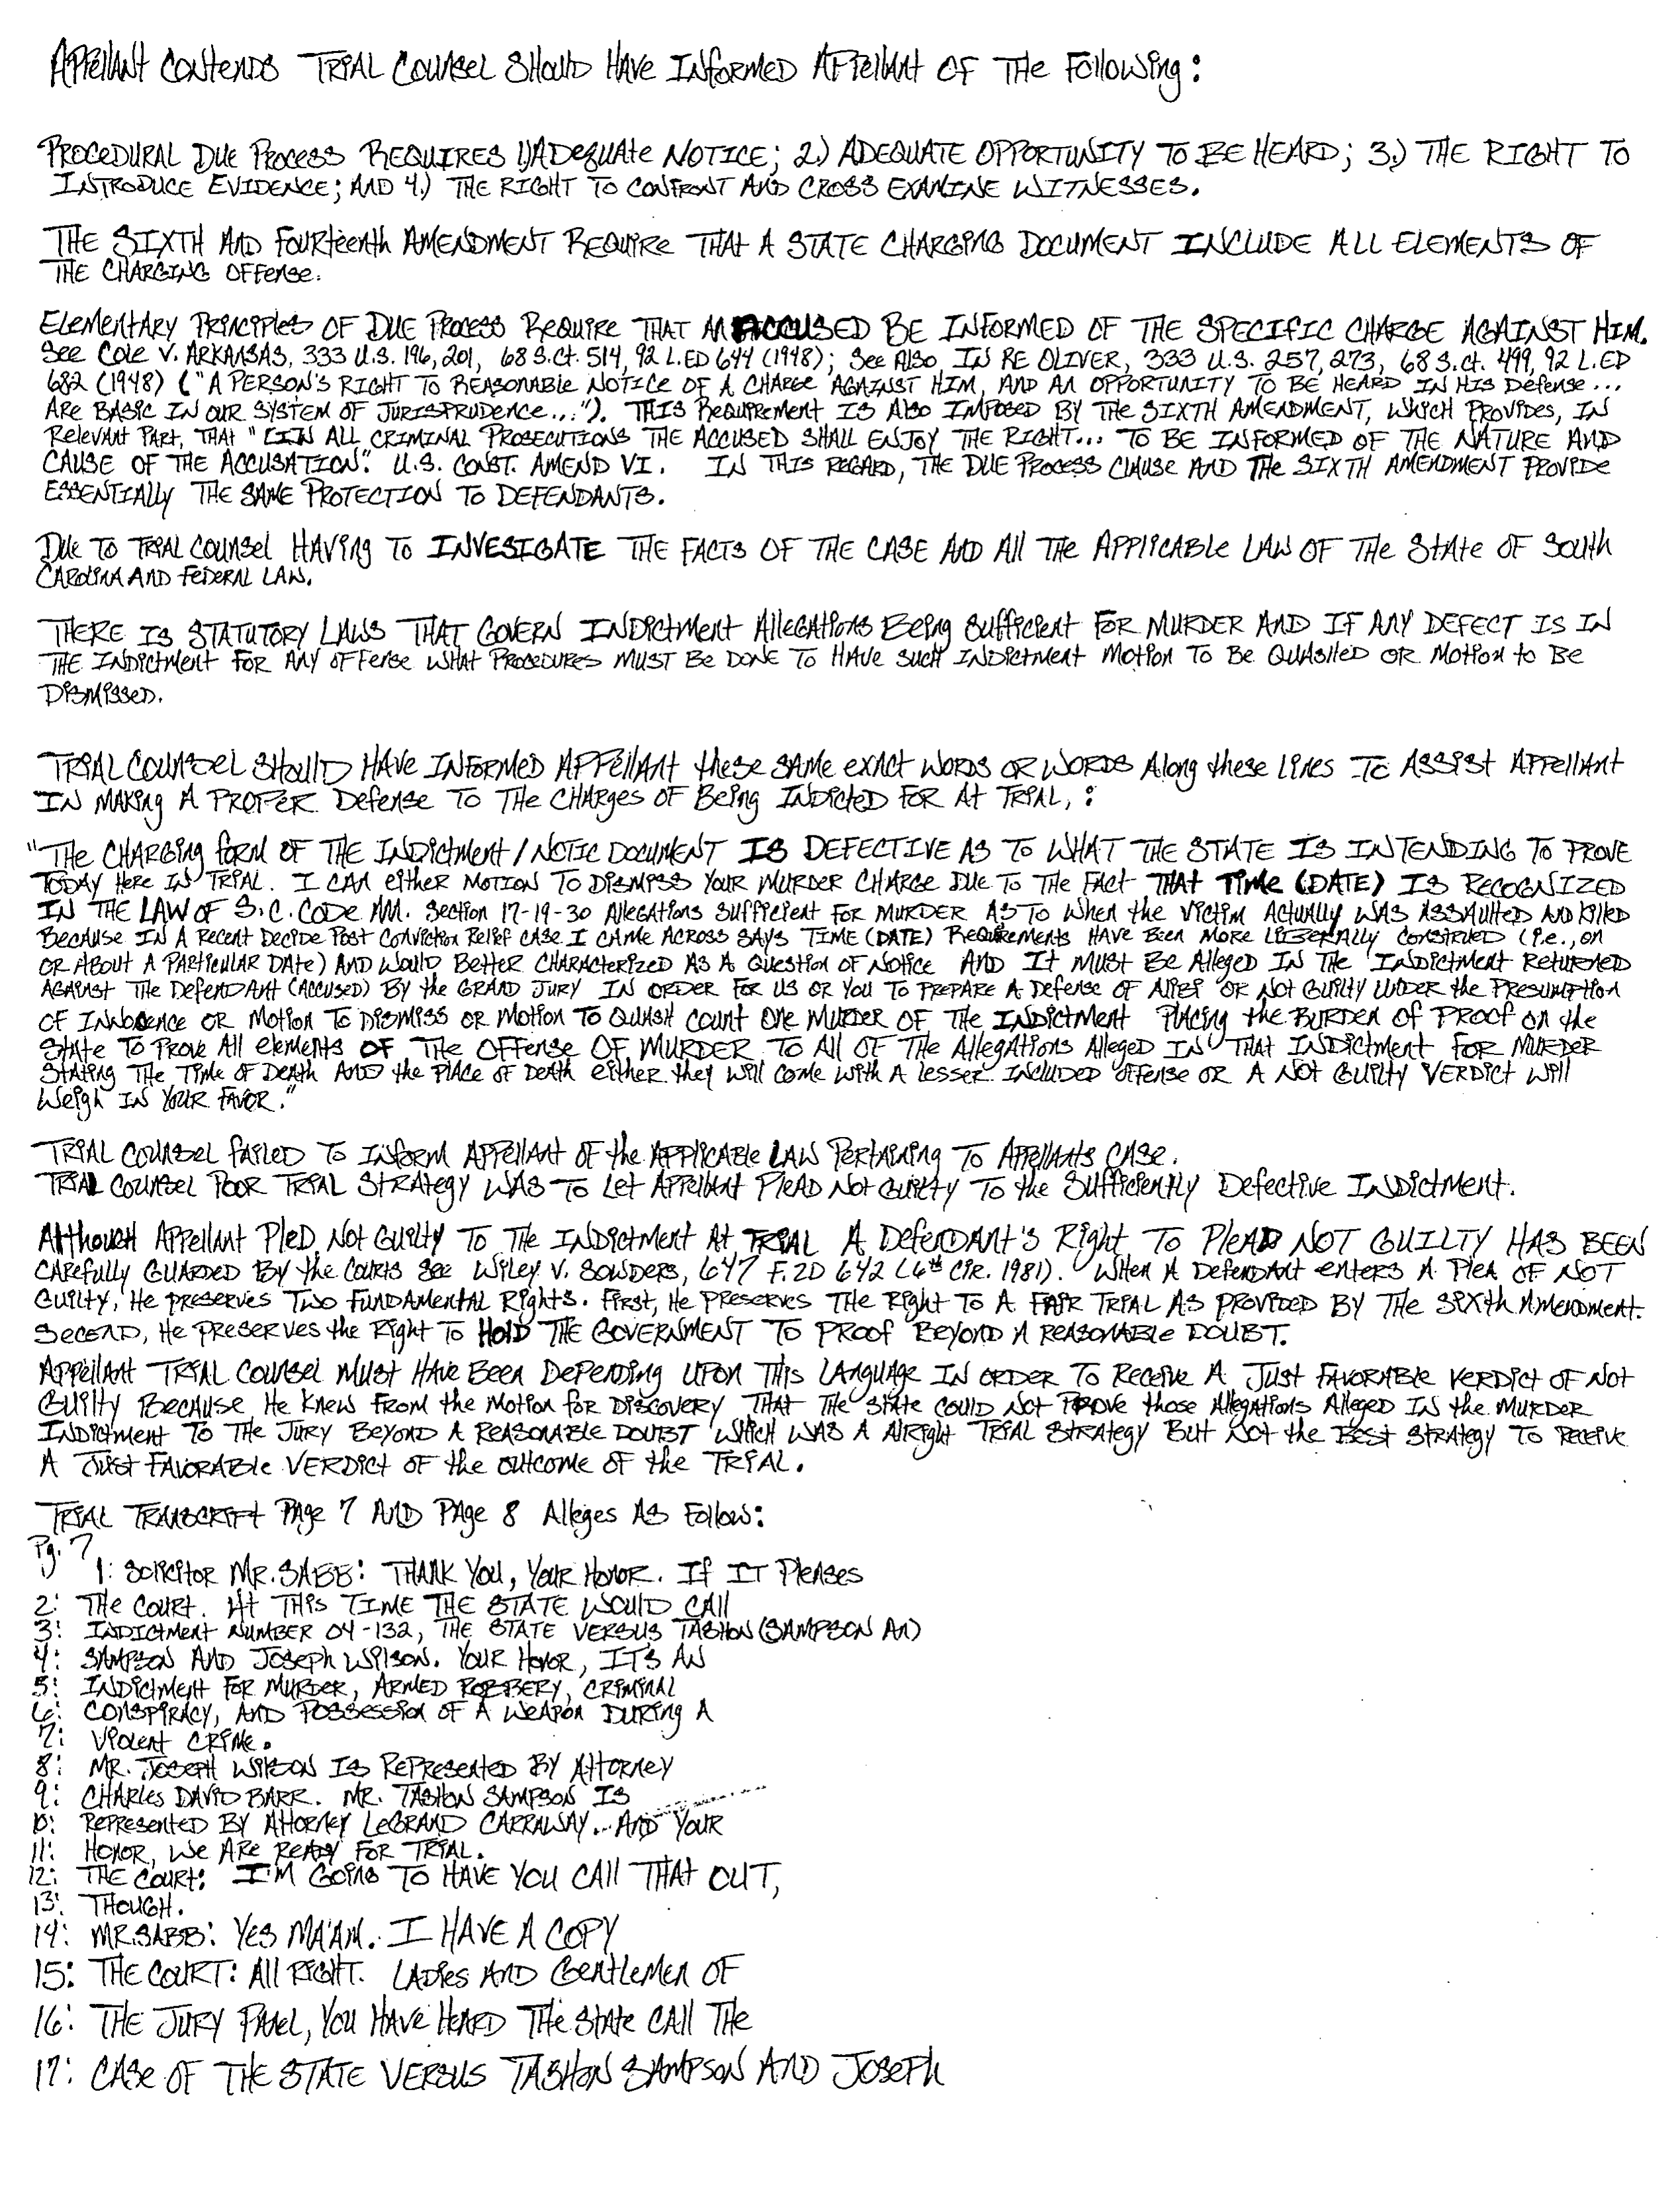 APPEllANT CONTENDS TRIAL COUNSEL SHOULD HAVE INFORMED APPEllANT OF THE FOllOWING:
PROCEDURAL DUE PROCESS REQUIRES 1.)ADEQUATE NOTICE; 2.) ADEQUATE OPPORTUNITY TO BE HEARD; 3.) THE RIGHT TO
INTRODUCE EVIDENCE; AND 4.) THE RIGHT TO CONFRONT AND CROSS EXAMINE WITNESSES.
THE SIXTH AND FOURTEENTH AMENDMENT REQUIRE THAT A STATE CHARGING DOCUMENT INCLUDE ALL ELEMENTS OF
THE CHARGING OFFENSE.
ELEMENTARY PRINCIPLES OF DUE PROCESS REQUIRE THAT AN ACCUSED BE INFORMED OF THE SPECIFIC CHARGE AGAINST HIM.
SEE COLE V. ARKANSAS, 333 U.S. 196, 201, 68 S.Ct. 514, 92 L.ED 644 (1948); SEE ALSO IN RE OLIVER, 333 U.S. 257, 273, 68 S.Ct. 499, 92 L.ED
682 (1948) ("A PERSON'S RIGHT TO REASONABLE NOTICE OF A CHARGE AGAINST HIM, AND AN OPPORTUNITY TO BE HEARD IN HIS DEFENSE...
ARE BASIC IN OUR SYSTEM OF JURISPRUDENCE..."). THIS REQUIREMENT IS ALSO IMPOSED BY THE SIXTH AMENDMENT, WHICH PROVIDES, IN
RELEVANT PART, THAT "[I]N ALL CRIMINAL PROSECUTIONS THE ACCUSED SHALL ENJOY THE RIGHT... TO BE INFORMED OF THE NATURE AND
CAUSE OF THE ACCUSATION". U.S. CONST. AMEND VI. IN THIS REGARD, THE DUE PROCESS CLAUSE AND THE SIXTH AMENDMENT PROVIDE
ESSENTIALLY THE SAME PROTECTION TO DEFENDANTS.
DUE TO TRIAL COUNSEL HAVING TO INVESIGATE THE FACTS OF THE CASE AND ALL THE APPLICABLE LAW OF THE STATE OF SOUTH
CAROLINA AND FEDERAL LAW.
THERE IS STATUTORY LAWS THAT GOVERN INDICTMENT ALLEGATIONS BEING SUFFICIENT FOR MURDER AND IF ANY DEFECT IS IN
THE INDICTMENT FOR ANY OFFENSE WHAT PROCEDURES MUST BE DONE TO HAVE SUCH INDICTMENT MOTION TO BE QUASHED OR MOTION TO BE
DISMISSED.
TRIAL COUNSEL SHOULD HAVE INFORMED APPELLANT THESE SAME EXACT WORDS OR WORDS ALONG THESE LINES TO ASSIST APPELLANT
IN MAKING A PROPER DEFENSE TO THE CHARGES OF BEING INDICTED FOR AT TRIAL, :
"THE CHARGING FORM OF THE INDICTMENT / NOTIC DOCUMENT IS DEFECTIVE AS TO WHAT THE STATE IS INTENDING TO PROVE
TODAY HERE IN TRIAL. I CAN EITHER MOTION TO DISMISS YOUR MURDER CHARGE DUE TO THE FACT THAT TIME (DATE) IS RECOGNIZED
IN THE LAW OF S.C. CODE ANN. SECTION 17-19-30 ALLEGATIONS SUFFICIENT FOR MURDER AS TO WHEN THE VICTIM ACTUALLY WAS ASSAULTED AND KILLED
BECAUSE IN A RECENT DECIDE POST CONVICTION RELIEF CASE I CAME ACROSS SAYS TIME (DATE) REQUIREMENTS HAVE BEEN MORE LIBERALLY CONSTRUED (i.e., ON
OR ABOUT A PARTICULAR DATE) AND WOULD BETTER CHARACTERIZED AS A QUESTION OF NOTICE AND IT MUST BE ALLEGED IN THE INDICTMENT RETURNED
AGAINST THE DEFENDANT (ACCUSED) BY THE GRAND JURY IN ORDER FOR US OR YOU TO PREPARE A DEFENSE OF ALIBI OR NOT GUILTY UNDER THE PRESUMPTION
OF INNOCENCE OR MOTION TO DISMISS OR MOTION TO QUASH COUNT ONE MURDER OF THE INDICTMENT PLACING THE BURDEN OF PROOF ON THE
STATE TO PROVE ALL ELEMENTS OF THE OFFENSE OF MURDER TO ALL OF THE ALLEGATIONS ALLEGED IN THAT INDICTMENT FOR MURDER
STATING THE TIME OF DEATH AND THE PLACE OF DEATH EITHER THEY WILL COME WITH A LESSER INCLUDED OFFENSE OR A NOT GUILTY VERDICT WILL
WEIGH IN YOUR FAVOR."
TRIAL COUNSEL FAILED TO INFORM APPELLANT OF THE APPLICABLE LAW PERTAINING TO APPELLANTS CASE.
TRIAL COUNSEL POOR TRIAL STRATEGY WAS TO LET APPELLANT PLEAD NOT GUILTY TO THE SUFFICIENTLY DEFECTIVE INDICTMENT.
ALTHOUGH APPELLANT PLED NOT GUILTY TO THE INDICTMENT AT TRIAL A DEFENDANT'S RIGHT TO PLEAD NOT GUILTY HAS BEEN
CAREFULLY GUARDED BY THE COURTS SEE WILEY V. SOWDERS, 647 F.2D 642 (6th CIR. 1981). WHEN A DEFENDANT ENTERS A PLEA OF NOT
GUILTY, HE PRESERVES TWO FUNDAMENTAL RIGHTS. FIRST, HE PRESERVES THE RIGHT TO A FAIR TRIAL AS PROVIDED BY THE SIXTH AMENDMENT.
SECEND, HE PRESERVES THE RIGHT TO HOLD THE GOVERNMENT TO PROOF BEYOND A REASONABLE DOUBT.
APPELLANT TRIAL COUNSEL MUST HAVE BEEN DEPENDING UPON THIS LANGUAGE IN ORDER TO RECEIVE A JUST FAVORABLE VERDICT OF NOT
GUILTY BECAUSE HE KNEW FROM THE MOTION FOR DISCOVERY THAT THE STATE COULD NOT PROVE THOSE ALLEGATIONS ALLEGED IN THE MURDER
INDICTMENT TO THE JURY BEYOND A REASONABLE DOUBT WHICH WAS A ALRIGHT TRIAL STRATEGY BUT NOT THE BEST STRATEGY TO RECEIVE
A JUST FAVORABLE VERDICT OF THE OUTCOME OF THE TRIAL.
TRIAL TRANSCRIPT PAGE 7 AND PAGE 8 ALLEGES AS FOLLOW:
Pg. 7
1: SOLICITOR MR. SABB: THANK YOU, YOUR HONOR. IF IT PLEASES
2: THE COURT. AT THIS TIME THE STATE WOULD CALL
3: INDICTMENT NUMBER 04-132, THE STATE VERSUS TASHON (SAMPSON AN)
4: SAMPSON AND JOSEPH WILSON. YOUR HONOR, IT'S AN
5: INDICTMENT FOR MURDER, ARMED ROBBERY, CRIMINAL
6: CONSPIRACY, AND POSSESSION OF A WEAPON DURING A
7: VIOLENT CRIME.
8: MR. JOSEPH WILSON IS REPRESENTED BY ATTORNEY
9: CHARLES DAVID BARR. MR. TASHON SAMPSON IS
10: REPRESENTED BY ATTORNEY LEGRAND CARRAWAY... AND YOUR
11: HONOR, WE ARE READY FOR TRIAL.
12: THE COURT: I'M GOING TO HAVE YOU CALL THAT OUT,
13: THOUGH.
14: MR.SABB: YES MA'AM. I HAVE A COPY
15: THE COURT: ALL RIGHT. LADIES AND GENTLEMEN OF
16: THE JURY PANEL, YOU HAVE HEARD THE STATE CALL THE
17: CASE OF THE STATE VERSUS TASHON SAMPSON AND JOSEPH